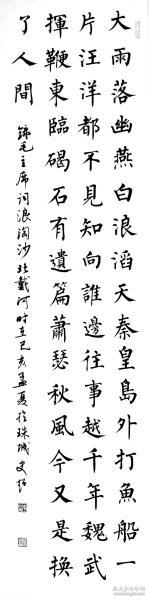 大雨落幽燕白浪滔天秦皇島外打魚船一
片汪洋都不見知向誰邊往事越千年魏武
揮鞭東臨碣石有遺篇蕭瑟秋風今又是換
了人間
毛主席詞浪淘沙北戴河時在己亥孟夏於珠城